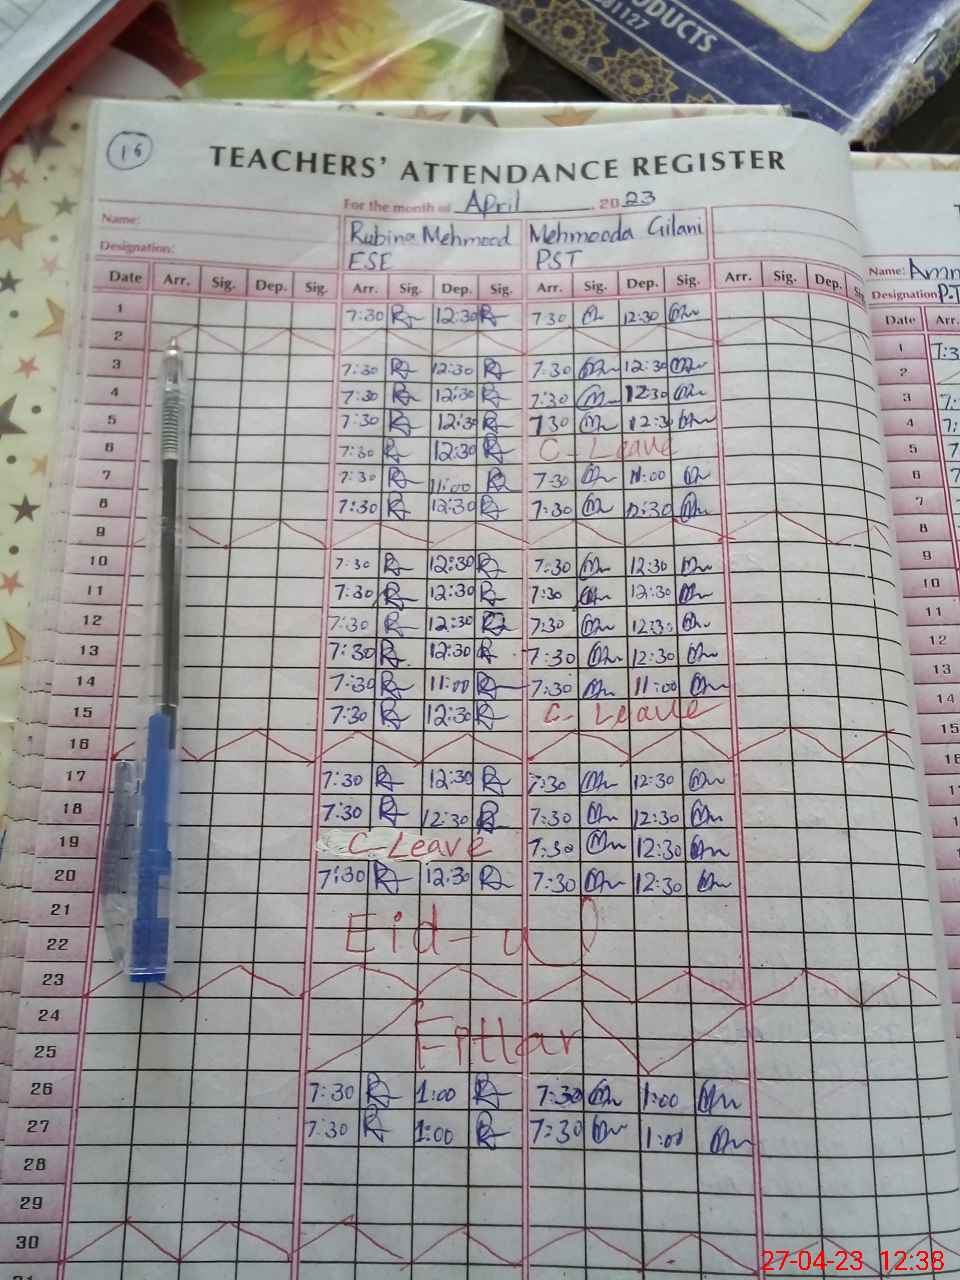 PRODUCTS
81127
16
TEACHERS' ATTENDANCE REGISTER
For the month of April, 2023
Name: Rubina Mehmood Mehmooda Gilani
Designation: ESE PST
Date Arr. Sig. Dep. Sig. Arr. Sig. Dep. Sig. Arr. Sig. Dep. Sig. Arr. Sig. Dep. Sig.
1 7:30 12:30 7:30 12:30
2
3 7:30 12:30 7:30 12:30
4 7:30 12:30 7:30 12:30
5 7:30 12:30 730 12:30
6 7:30 12:30 C-Leave
7 7:30 11:00 7:30 11:00
8 7:30 12:30 7:30 12:30
9
10 7:30 12:30 7:30 12:30
11 7:30 12:30 7:30 12:30
12 7:30 12:30 7:30 12:30
13 7:30 12:30 7:30 12:30
14 7:30 11:00 7:30 11:00
15 7:30 12:30 C-Leave
16
17 7:30 12:30 7:30 12:30
18 7:30 12:30 7:30 12:30
19 C-Leave 7:30 12:30
20 7:30 12:30 7:30 12:30
21
22 Eid-ul
23
24
25 Fittar
26 7:30 1:00 7:30 1:00
27 7:30 1:00 7:30 1:00
28
29
30
Name:
Designation P.T
Date Arr.
1
2
3
4
5
6
7
8
9
10
11
12
13
14
15
27-04-23 12:38